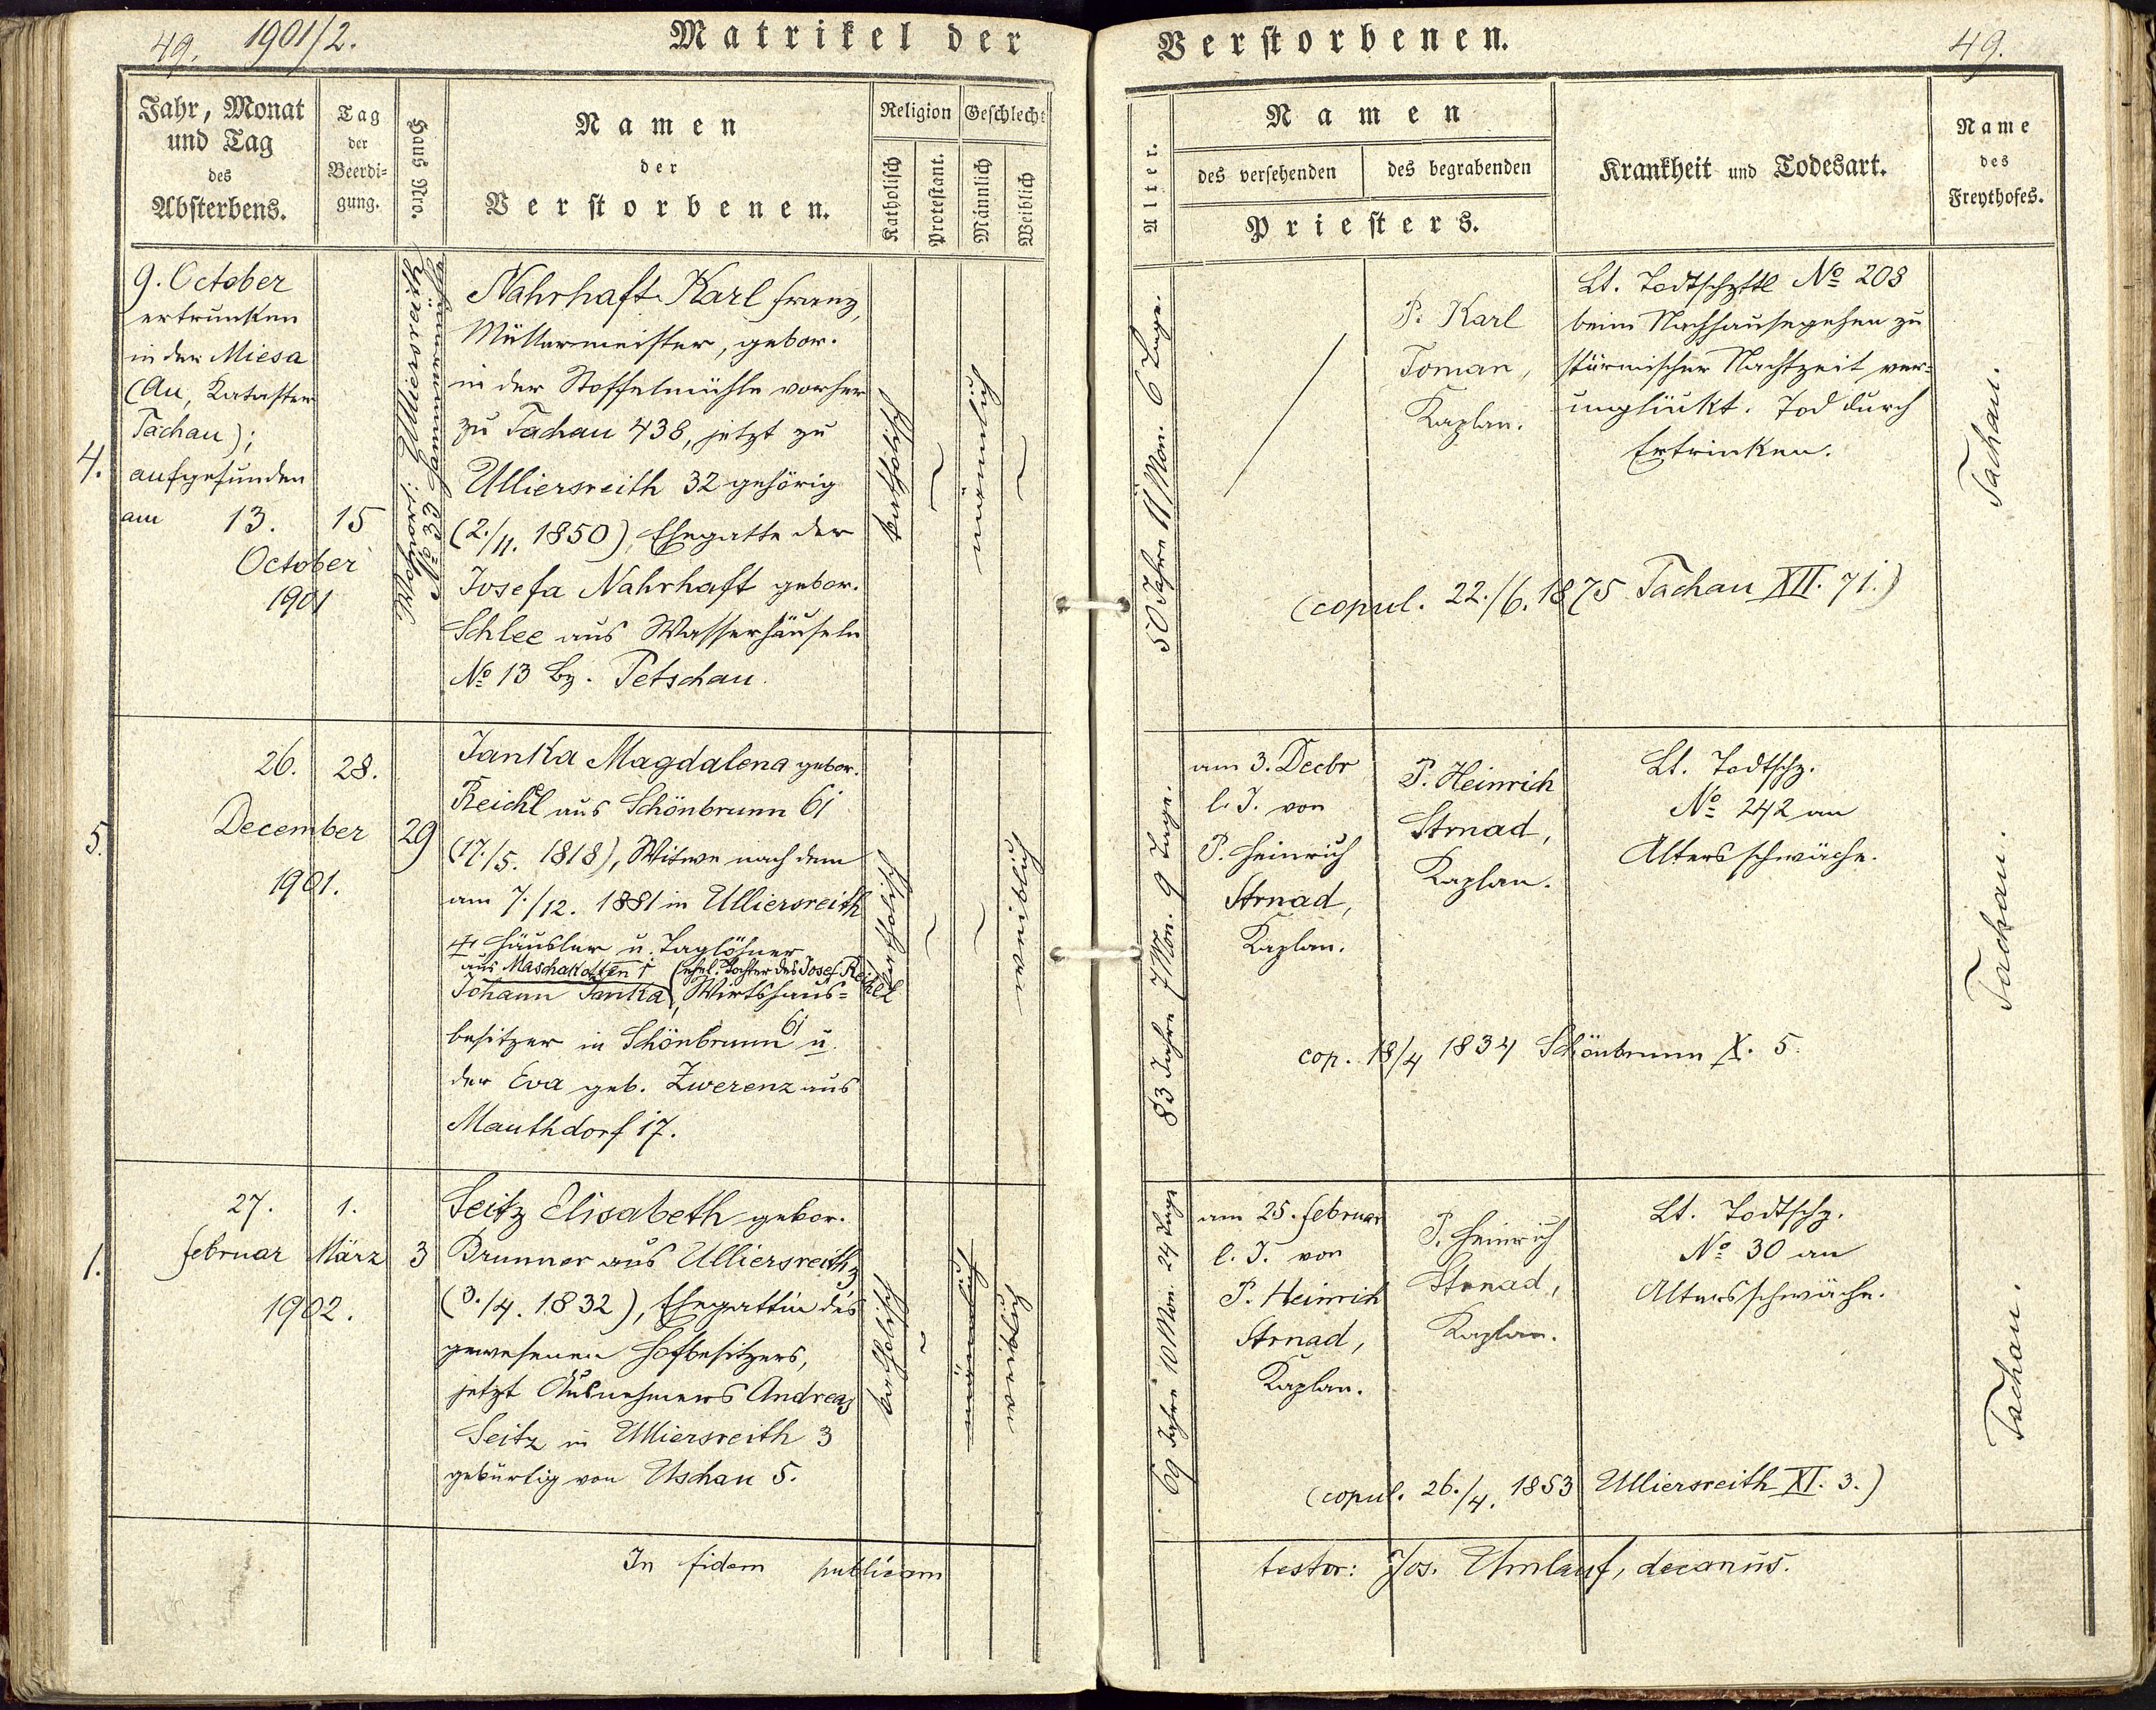 49. 1901/2.
Matrikel der Verstorbenen.
49.
Jahr, Monat
und Tag
des
Absterbens.
Tag
der
Beerdi=
gung.
Haus Nro.
Namen
der
Verstorbenen.
Religion
Katholisch
Protestant.
Geschlecht
Männlich
Weiblich
Alter.
Namen
des versehenden
des begrabenden
Priesters.
Krankheit und Todesart.
Name
des
Freythofes.
4.
9. October
ertrunken
in der Miesa
(Au, Kataster
Tachau);
aufgefunden
am 13.
October
1901
15
Ulliersreith
No 32
Nahrhaft Karl Franz,
Müllermeister, gebor.
in der Stoffelmühle vorher
zu Tachau 438, jetzt zu
Ulliersreith 32 gehörig
(2./11. 1850), Ehegatte der
Josefa Nahrhaft gebor.
Schlee aus Wasserhäuseln
No 13 Bz. Petschau.
katholisch
männlich
50 Jahre 11 Mon. 6 Tage.
P. Karl
Toman,
Kaplan.
Lt. Todtschzttl No 203
beim Nachhausegehen zu
stürmischer Nachtzeit ver=
unglückt. Tod durch
Ertrinken.
Tachau.
(copul. 22./6. 1875 Tachau XII. 71.)
5.
26.
December
1901.
28.
29
Janka Magdalena gebor.
Reichl aus Schönbrunn 61
(17./5. 1818), Witwe nach dem
am 7./12. 1881 in Ulliersreith
Häusler u. Taglöhner
aus Maschakotten 1 (ehel. Tochter des Josef Reichl
Johann Janka, Wirtshaus=
besitzer in Schönbrunn 61 u.
der Eva geb. Zwerenz aus
Mauthdorf 17.
katholisch
weiblich
83 Jahre 7 Mon. 9 Tage.
am 3. Decbr
l. J. von
P. Heinrich
Strnad,
Kaplan.
P. Heinrich
Strnad,
Kaplan.
Lt. Todtschz.
No 242 an
Altersschwäche.
Tachau.
cop. 18/4 1834 Schönbrunn X. 5.
1.
27.
Februar
1902.
1.
März
3
Seitz Elisabeth gebor.
Brunner aus Ulliersreith 3
(3./4. 1832), Ehegattin des
gewesenen Hofbesitzers,
jetzt Ausnehmers Andreas
Seitz in Ulliersreith 3
gebürtig von Uschau 5.
katholisch
männlich
weiblich
69 Jahre 10 Mon. 24 Tage
am 25. Februar
l. J. von
P. Heinrich
Strnad,
Kaplan.
P. Heinrich
Strnad,
Kaplan.
Lt. Todtschz.
No 30 an
Altersschwäche.
Tachau.
(copul. 26./4. 1853 Ulliersreith XI. 3.)
In fidem publicam testor: Jos. Umlauf, decanus.